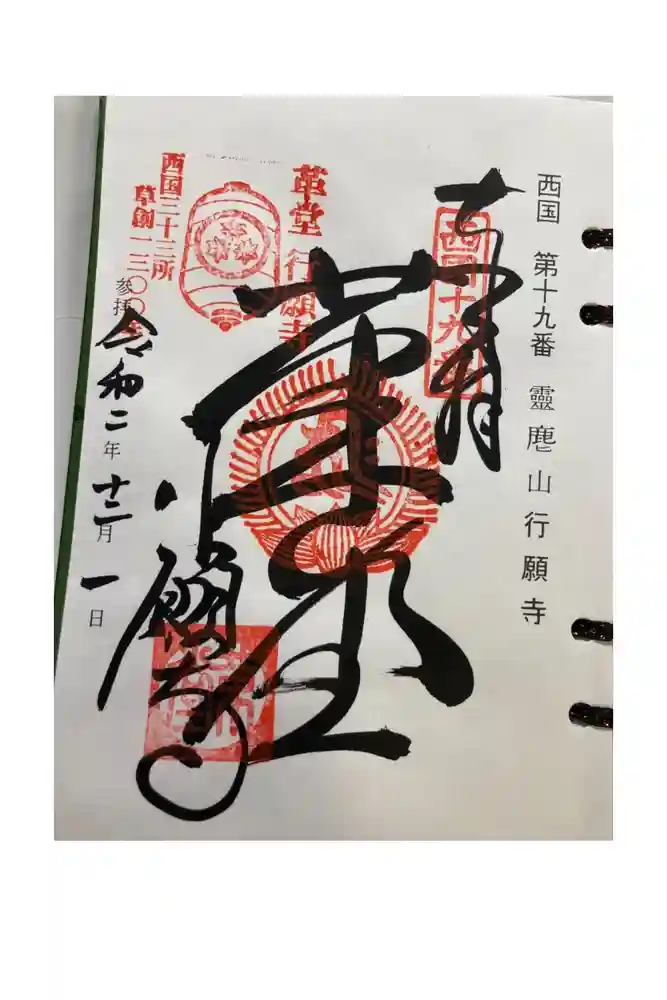 西国 第十九番 靈麀山行願寺
西国十九番
革堂
革堂 行願寺
行願寺
西国三十三所
草創一三〇〇年
参拝 令和二年十二月一日